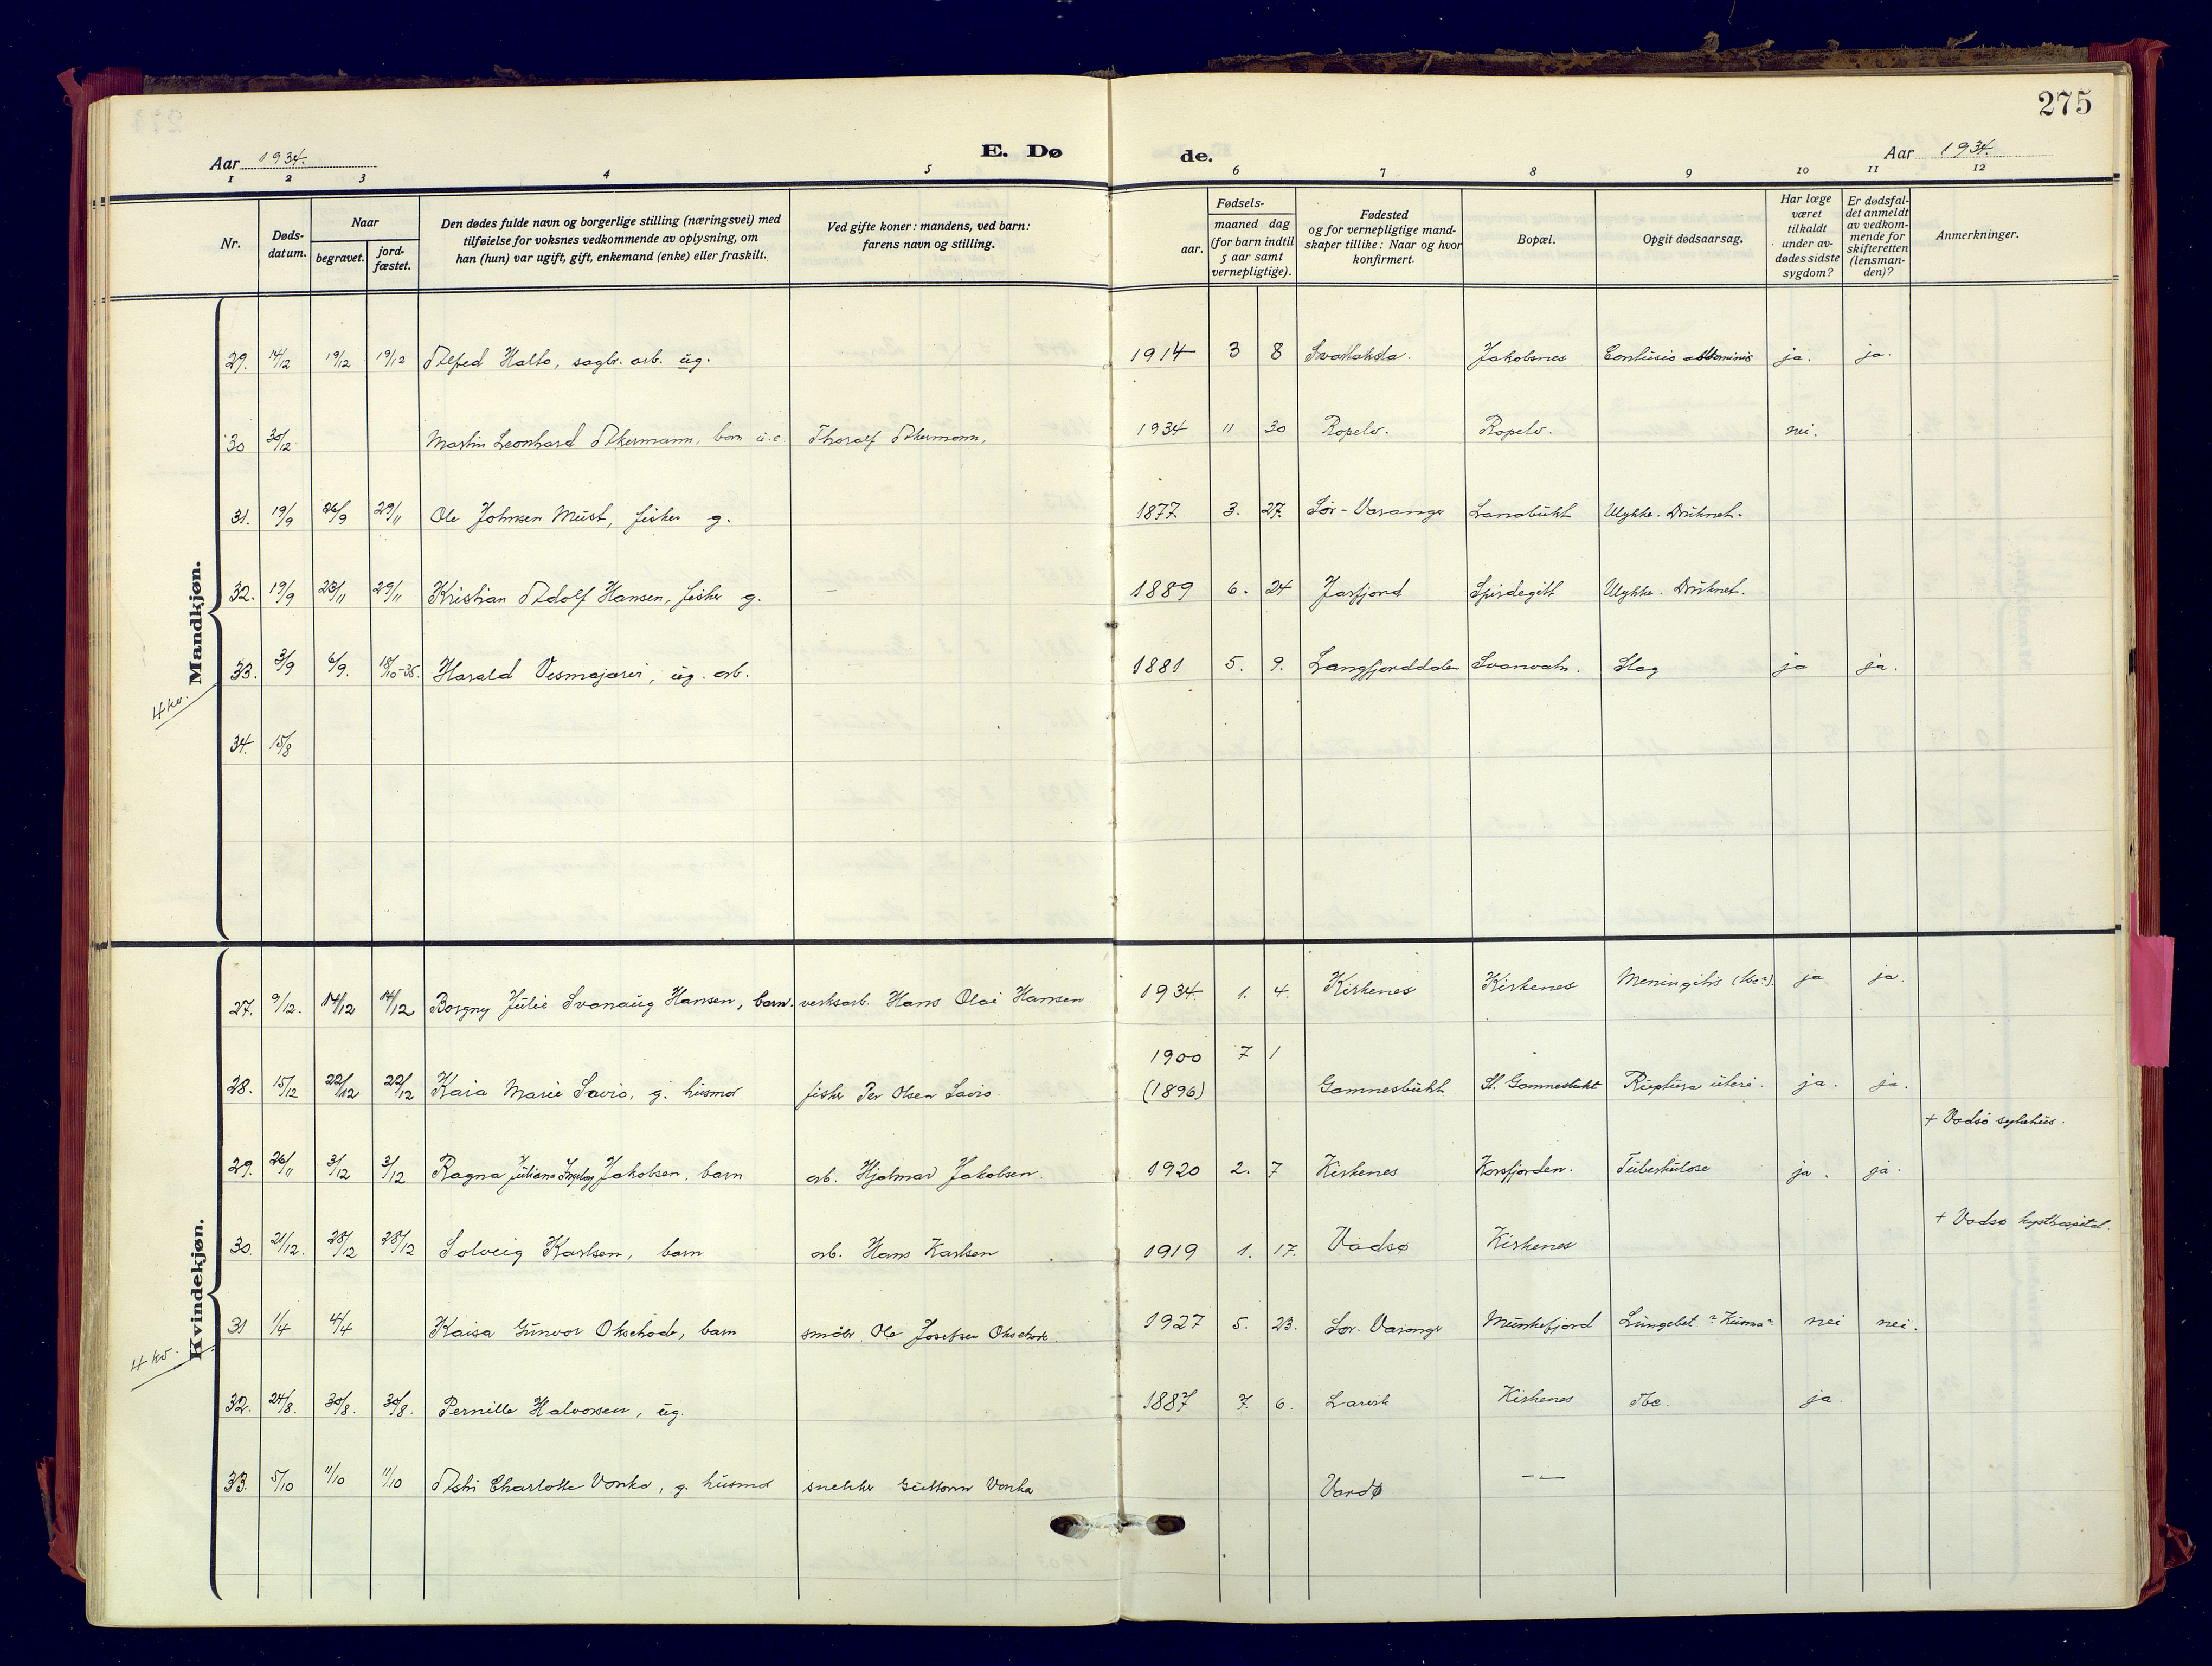 275
Aar 1934. E. Dø de. Aar 1934.
1 2 3 4 5 6 7 8 9 10 11 12
Nr. Døds-datum. Naar begravet. jord-fæstet. Den dødes fulde navn og borgerlige stilling (næringsvei) med tilføielse for voksnes vedkommende av oplysning, om han (hun) var ugift, gift, enkemand (enke) eller fraskilt. Ved gifte koner: mandens, ved barn: farens navn og stilling. Fødsels- aar. maaned dag (for barn indtil 5 aar samt vernepligtige). Fødested og for vernepligtige mand-skaper tillike: Naar og hvor konfirmert. Bopæl. Opgit dødsaarsag. Har læge været tilkaldt under av-dødes sidste sygdom? Er dødsfal-det anmeldt av vedkom-mende for skifteretten (lensman-den)? Anmerkninger.
Mandkjøn.
4 kv.
29. 14/12 19/12 19/12 Alfred Halto, sagbr. arb. ug. 1914 3 8 Jakobsnes Contusio abdominis ja. ja.
30 30/12 Martin Leonhard Akermann, barn u.e. Thoralf Akermann, 1934 11 30 Ropelv. Ropelv. nei.
31. 19/9 26/9 29/11 Ole Johnsen Must, fisker g. 1877. 3. 27. Sør-Varanger Lanabukt Ulykke. Druknet.
32. 19/9 23/11 29/11 Kristian Adolf Hansen, fisker g. 1889 6. 24 Jarfjord Ulykke. Druknet.
33. 3/9 6/9. 18/10-35. Harald Vesmajærvi, ug. arb. 1881 5. 9. Langfjorddalen Svanvatn. Slag ja ja.
34. 15/8
Kvindekjøn.
4 kv.
27. 9/12. 14/12 14/12 Borgny Julie Svanaug Hansen, barn. verksarb. Hans Olai Hansen 1934. 1. 4. Kirkenes Kirkenes Meningitis (tbc?). ja ja.
28. 15/12 22/12 22/12 Kaia Marie Savio, g. husmor fisker Per Olsen Savio. 1900 (1896) 7 1 Gamnesbukt St. Gamnesbukt Ruptura uteri. ja. ja.
29. 26/11 3/12 3/12 Ragna Juliane Ingeborg Jakobsen, barn arb. Hjalmar Jakobsen. 1920 2. 7 Kirkenes Korsfjorden. Tuberkulose ja. ja. + Vadsø sykehus.
30. 21/12. 28/12 28/12 Solveig Karlsen, barn arb. Hans Karlsen 1919 1. 17. Vadsø Kirkenes + Vadsø kysthospital.
31 1/4 4/4 Kaisa Gunvor Oksehode, barn småbr. Ole Josefsen Oksehode 1927 5. 23. Sør-Varanger Munkefjord Lungebet. nei nei.
32. 24/8. 30/8. 30/8. Pernille Halvorsen, ug. 1887 7. 6. Larvik Kirkenes Tbc. ja.
33. 5/10 11/10 11/10 Charlotte Vonka, g. husmor snekker Guttorm Vonka Vardø —〃—